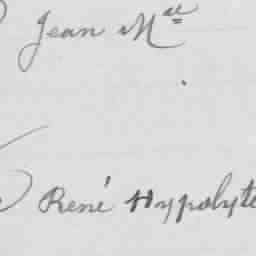 Jean Mce
René Hypolyte